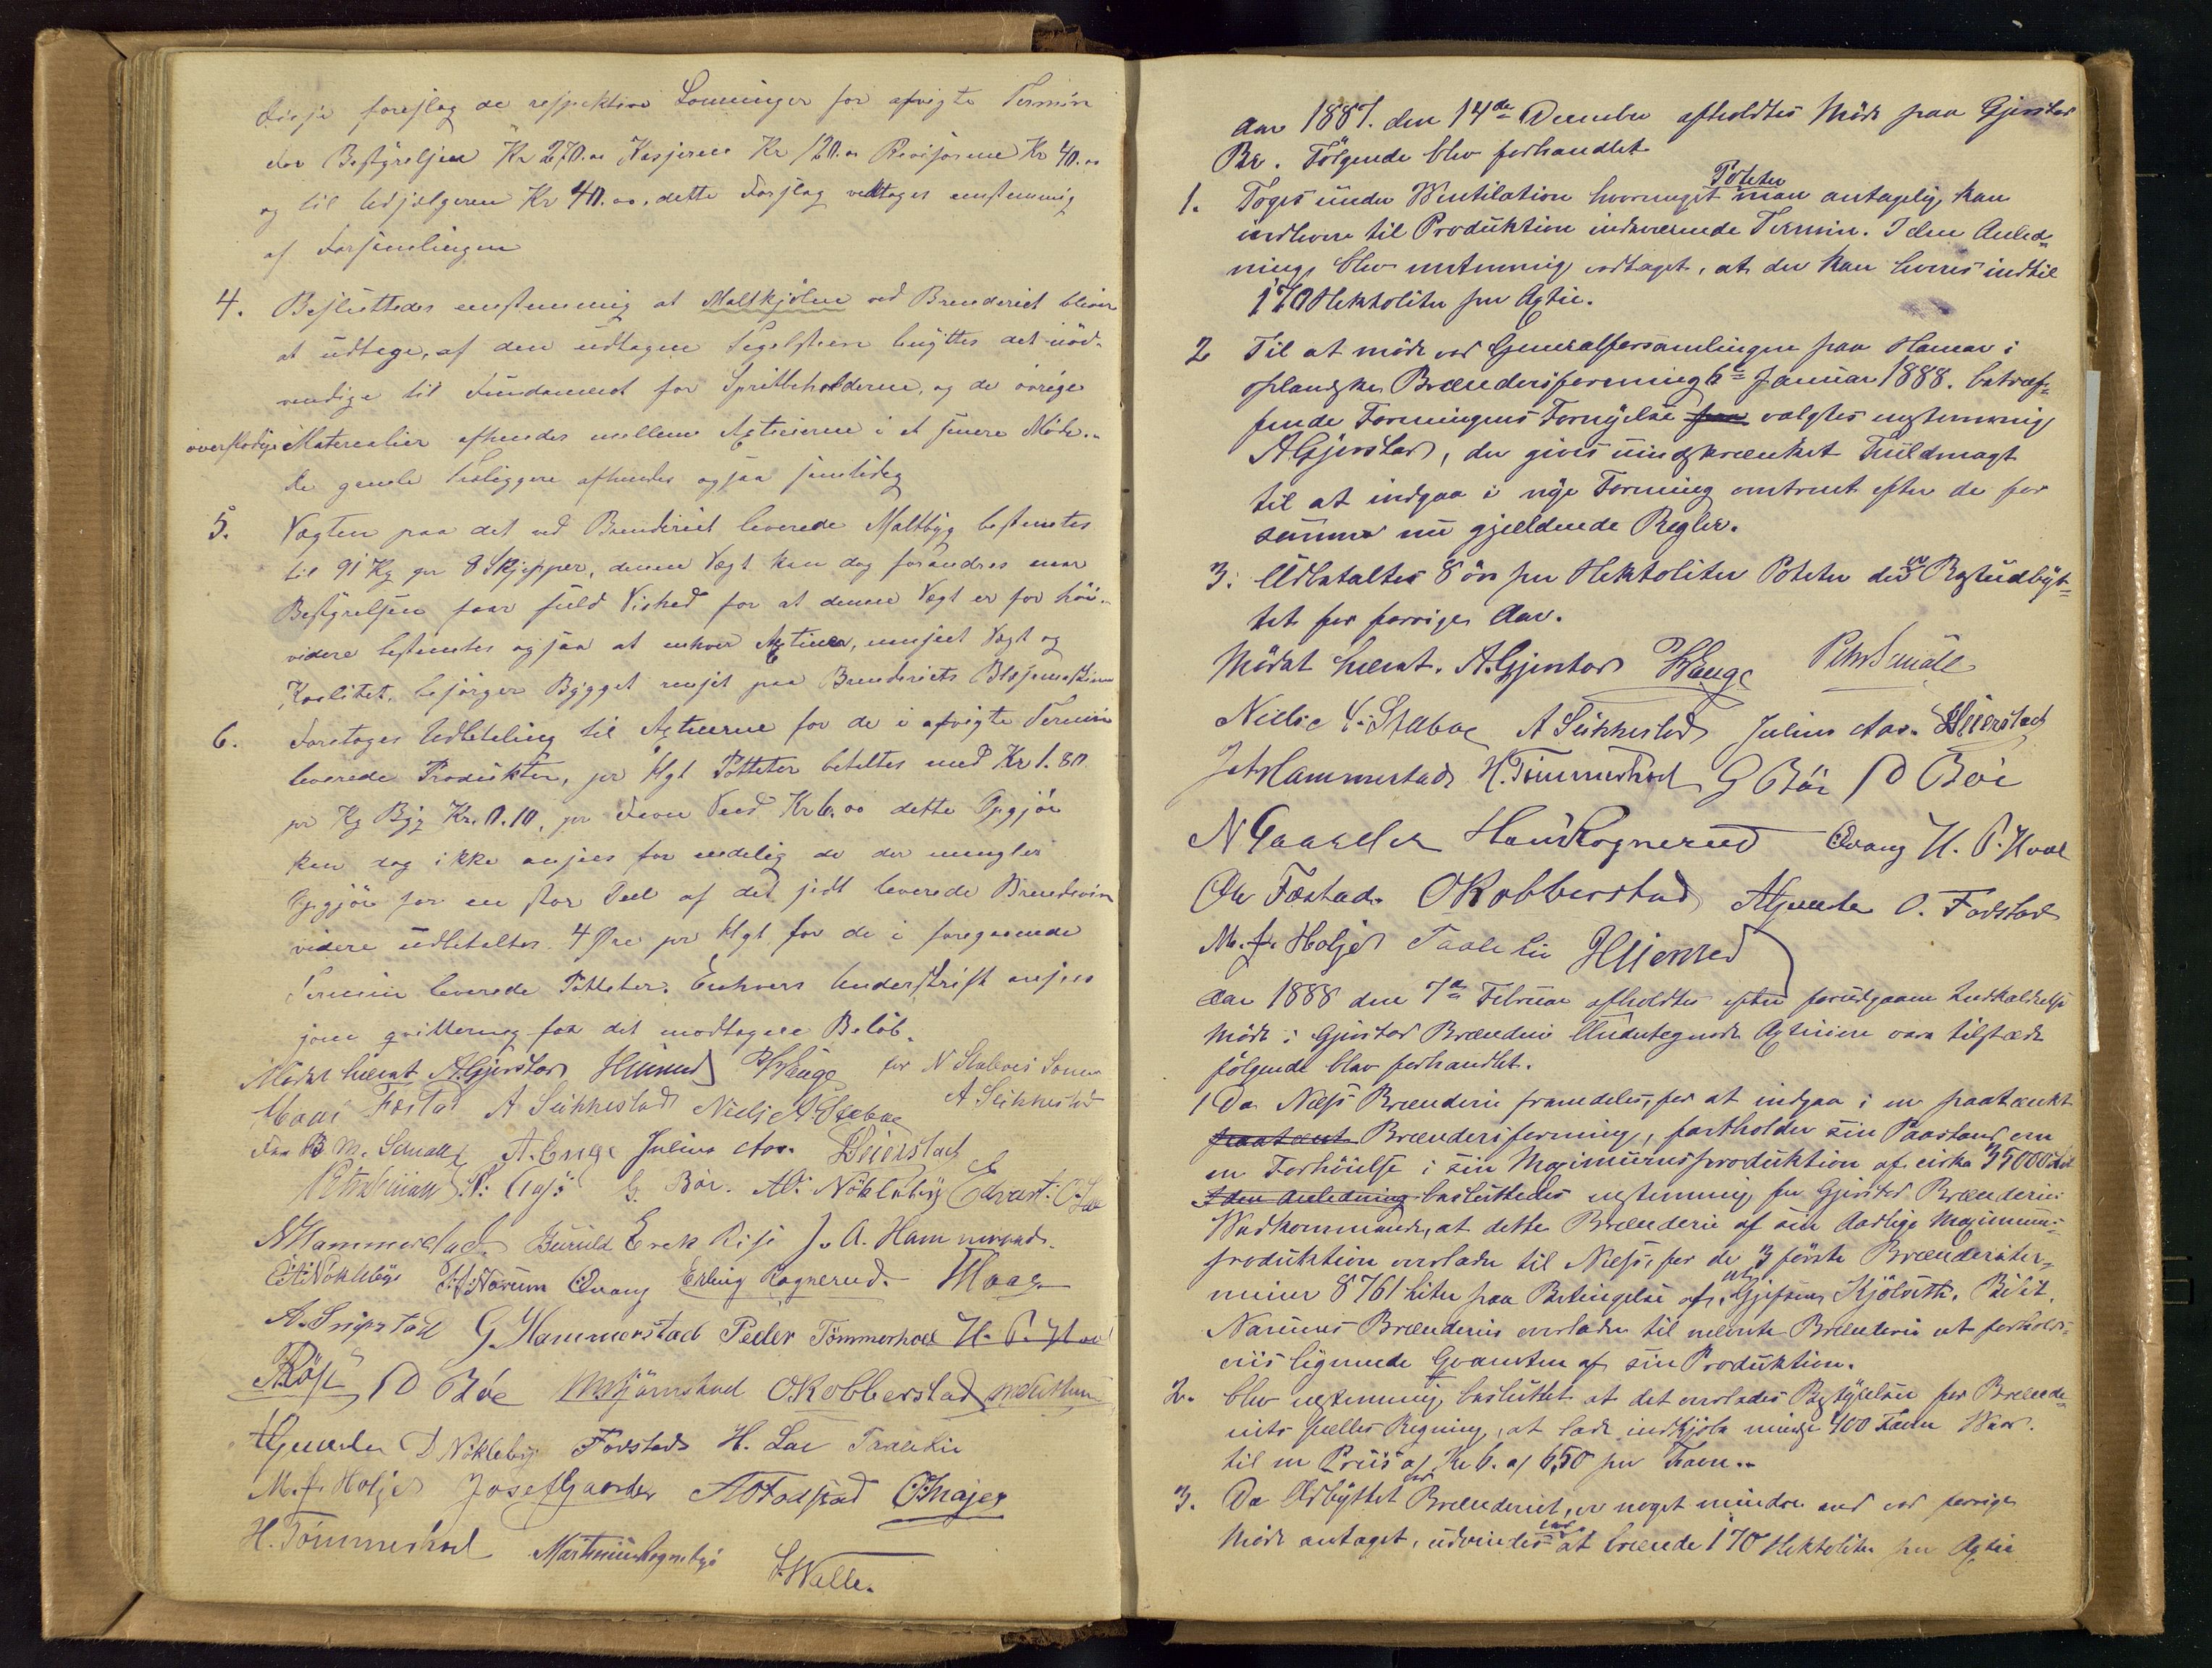 Disse foreslog de respektive Lønninger for afvigte Termin
for Bestyrelsen Kr 270.00 Kasjeren Kr 120.00 Revisorerne Kr 40.00
og til Udsælgeren Kr 40.00, dette Forslag vedtoges enstemmig
af Forsamlingen
4. Besluttedes enstemmig at Maltkjølne ved Brenderiet bliver
at udtage, af den udtagne Tegelsteen benyttes det nöd-
vendige til Fundament for Spritbeholderne, og de øvrige
overflødige Materealier afhendes mellem Agtierne i et senere Möde.
de gamle Tiloliggere afhendes ogsaa samtidig
5. Vægten paa det ved Brenderiet leverede Maltbyg bestemtes
til 91 Kg pr 8 Skjepper, denne Vægt kan dog forandres naar
Bestyrelsen faar fuld Vished for at denne Vægt er for höi.
videre bestemtes ogsaa at enhver Agtieeier, unseet Vægt og
Kvalitet, besörger Bygget renset paa Brenderiets Blæsemaskine
6. Foretoges Udbetaling til Agtierne for de i afvigte Termin
leverede Produkter, pr Hgt Potteter betaltes med Kr 1.80
pr Kg Byg Kr. 0.10, pr Favn Ved Kr 6.00 dette Opgjör
kan dog ikke ansees for endelig da der mangler
Opgjör for en stor Deel af det sidst leverede Brendevin
videre udbetaltes 4 Øre pr Hgt for de i foregaaende
Termin leverede Potteter. Enhvers Underskrift ansees
som qvittering for det modtagne Belöb.
Mödet hævet A. Gjerstad HHienrud PHauge for N Stabos Sönner
Haar Fostad A Seikkestad Nielse A Stabae A Seikkestad
for B M. Smalle A. Enge Julius Aas. Beierstad
Peter Smüll N: Gajö G. Böe. A: Nökleby Edvart: O Lae
N Hammerstad. Buruld Erek Rise J. A. Hammerstad.
C: A: Nökleby H: Narum Qvang Erling Rognerud. Haag
A. Smerstad G. Hammerstad Peder Tömmerhoel H. P. Hoel
Röse P Böe M Hjörnstad O Kobberstad
A Gaarder D Nökleby Fodstad H. Lae Taale Lie
M. f. Holje Josef Gaarder A Fodstad C Thajer
H. Tömmerhoel Martinius Rognebye S. Walle.
Aar 1887. den 14de December afholdtes Möde paa Gjerstad
Br. Fölgende blev forhandlet
1. Toges under Wentilation hvormeget Poteter man antagelig kan
indlevere til Produktion indeværende Termin. I den Anled-
ning blev enstemmig vedtaget, at der kan leveres indtil
170 Hektoliter per Agtie.
2 Til at möde ved Generalforsamlingen paa Hamar i
oplandske Brænderiforening 6te Januar 1888. betræf-
fende Foreningens Fornyelse paa valgtes enstemmig
A Gjerstad, der gives uindskrænket Fuldmagt
til at indgaa i nye Forening omtrent efter de for
samme nu gjældende Regler.
3. Udbetaltes 8 øre per Hektoliter Poteter der er Restudbyt-
tet for forrige Aar.
Mödet hævet. A. Gjerstad PHauge Peter Smüll
Nielse A. Stabae A Seikkestad Julius Aas. Beierstad
Joh Hammerstad H. Tömmerhoel G Böe P Böe
N Gaarder Hans Rognerud Qvang H. P. Hoel
Ole Fostad. O Kobberstad A Gaarder O. Fodstad
M. f. Holje Taale Lie HHienrud
Aar 1888 den 7de Februar afholdtes efter forudgaaen Indkaldelse
Möde i Gjerstad Brænderi Undertegnede Agtieiere vare tilstæde
fölgende blev forhandlet.
1 Da Næss Brænderi fremdeles, for at indgaa i en paatænkt
paatænt Brænderiforening, fastholder sin Paastand om
en Forhöielse i sin Maximumsproduktion af cirka 35000 Liter
I den Anledning besluttedes enstemmig for Gjerstad Brænderies
Wedkommende, at dette Brænderi af sin Aarlige Maximums-
produktion overlader til Næss, for de 3 förste Brænderiter-
miner 8761 Liter paa Betingelse af, at Gjefsen, Kjölseth, Balit,
Narums Brænderier overlader til nævnte Brænderi et forholds-
viis lignende Qvantum af sin Produktion.
2. blev enstemmig besluttet at det overlades Bestyrelsen for Brænde-
riets fælles Regning, at lade indkjöbe mindst 400 Favn Wed.
til en Priis af Kr 6. af 6,50 per Favn.
3. Da Udbyttet ved Brænderiet, er noget mindre end ved forrige
Möde antaget, udvides at brænde 170 Hektoliter per Agtie